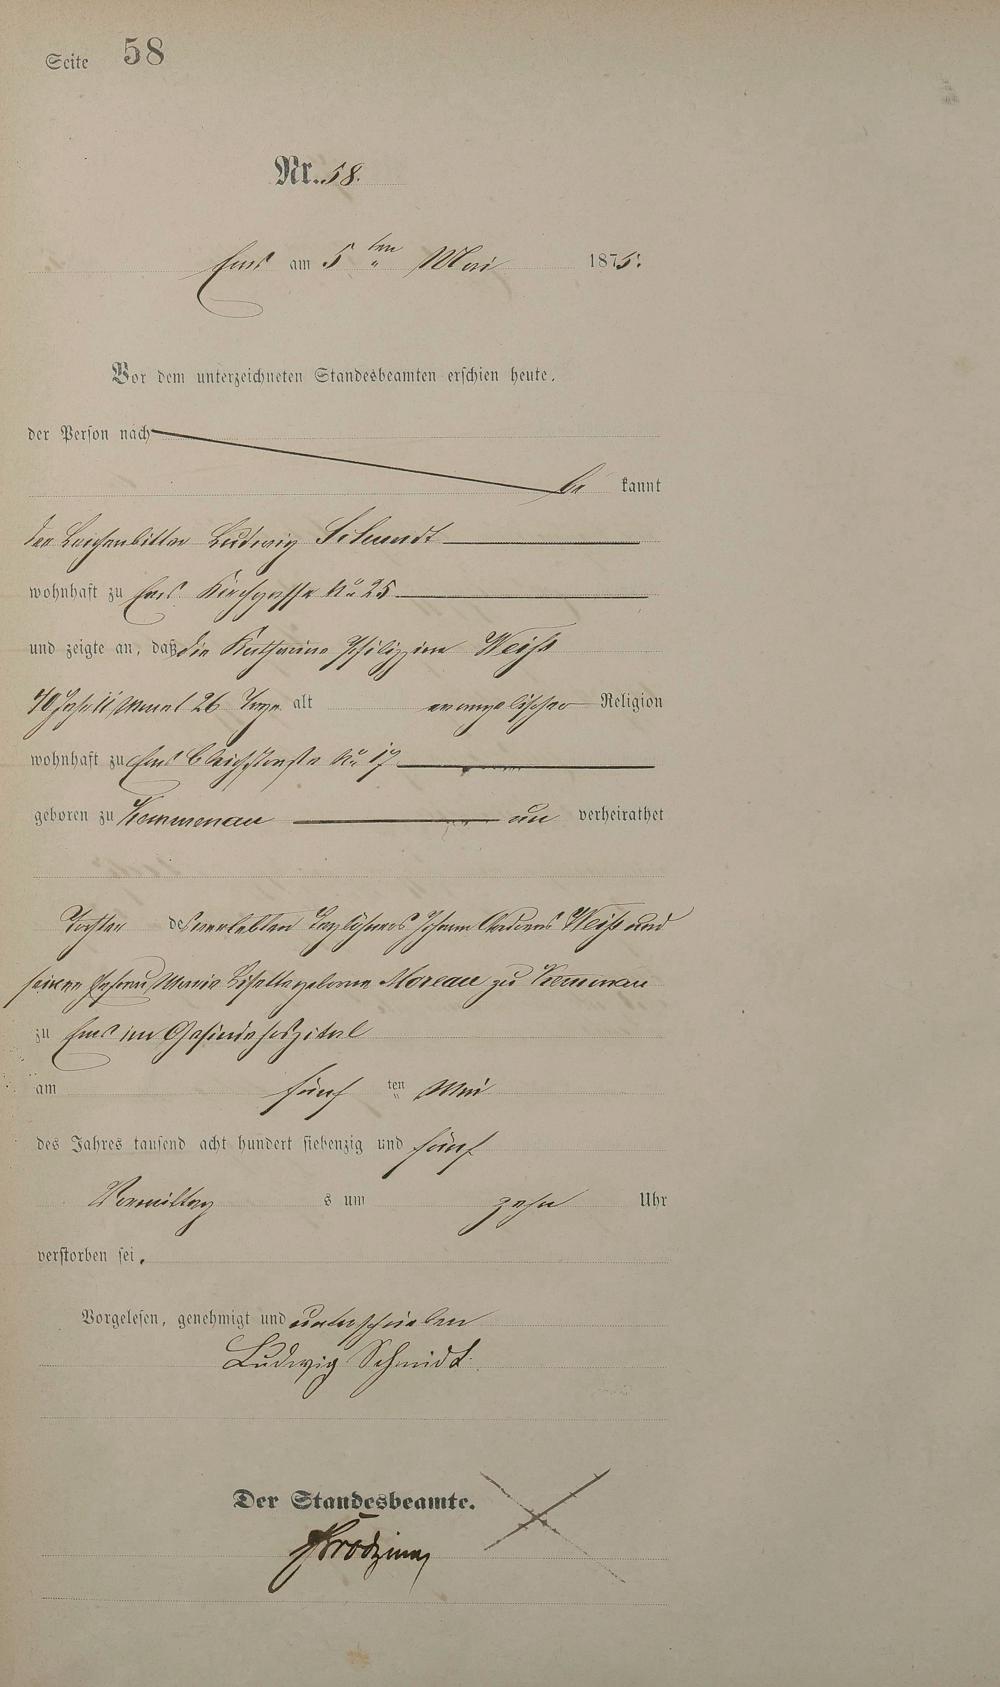 Seite 58
Nr. 58.
Ems am 5 ten Mai 1875.
Vor dem unterzeichneten Standesbeamten erschien heute,
der Person nach
be kannt
der Leichenbitter Ludwig Schmidt
wohnhaft zu Ems Kirchgasse No 25
und zeigte an, daß die Katharine Philippine Weiß
40 Jahr 11 Monat 26 Tage alt evangelischer Religion
wohnhaft zu Ems Bleichstraße No 17
geboren zu Kemmenau un verheirathet
Tochter des verlebten Taglöhners Johann Andreas Weiß und
seiner Ehefrau Marie Lisette geborne Moreau zu Kemmenau
zu Ems im Gesindehospital
am fünf ten Mai
des Jahres tausend acht hundert siebenzig und fünf
Vormittag s um zehn Uhr
verstorben sei.
Vorgelesen, genehmigt und unterschrieben
Ludwig Schmidt.
Der Standesbeamte.